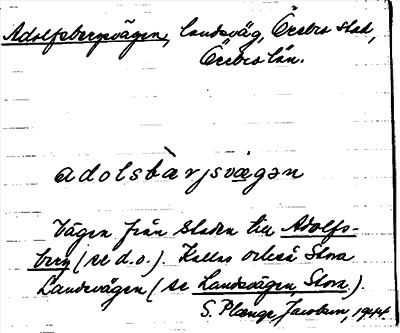 Adolfsbergsvägen, landsväg, Örebro stad,
Örebro län.
adolsbàrjsvægən
Vägen från staden till Adolfs-
berg (se d.o.). Kallas också Stora
Landsvägen (se Landsvägen, Stora).
S. Plænge Jacobson, 1944